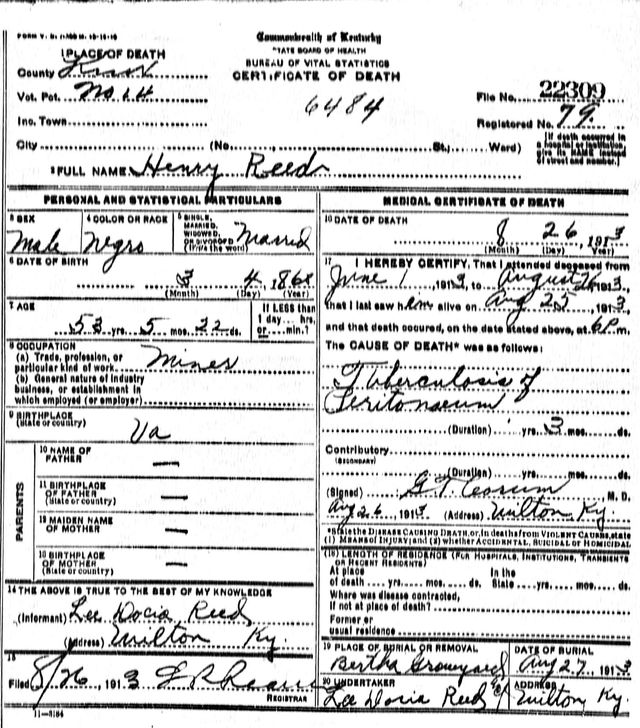 FORM V. S.
Commonwealth of Kentucky
STATE BOARD OF HEALTH
BUREAU OF VITAL STATISTICS
CERTIFICATE OF DEATH
1 PLACE OF DEATH
County Knox
Vot. Pct. No. 14
Inc. Town
City (No. St., Ward)
6484
File No. 22309
Registered No. 79
[If death occurred in a hospital or institution, give its NAME instead of street and number.]
2 FULL NAME Henry Reed
PERSONAL AND STATISTICAL PARTICULARS
3 SEX Male
4 COLOR OR RACE Negro
5 SINGLE, MARRIED, WIDOWED, OR DIVORCED (Write the word) Married
6 DATE OF BIRTH 3 4 1860
(Month) (Day) (Year)
7 AGE 53 yrs. 5 mos. 22 ds.
If LESS than 1 day.... hrs. or.... min.?
8 OCCUPATION
(a) Trade, profession, or particular kind of work Miner
(b) General nature of industry business, or establishment in which employed (or employer)
9 BIRTHPLACE
(State or country) Va
PARENTS
10 NAME OF FATHER —
11 BIRTHPLACE OF FATHER (State or country) —
12 MAIDEN NAME OF MOTHER —
13 BIRTHPLACE OF MOTHER (State or country) —
14 THE ABOVE IS TRUE TO THE BEST OF MY KNOWLEDGE
(Informant) Lee Docia Reed
(Address) Wilton Ky.
15
Filed 8/26 1913
REGISTRAR
11-3184
MEDICAL CERTIFICATE OF DEATH
16 DATE OF DEATH 8 26 1913
(Month) (Day) (Year)
17 I HEREBY CERTIFY, That I attended deceased from
June 1 1913 to August 26 1913
that I last saw him alive on Aug 25 1913,
and that death occured, on the date stated above, at 6 P.m.
The CAUSE OF DEATH* was as follows:
Tuberculosis of
Peritonaeum
(Duration) yrs. 3 mos. ds.
Contributory
(SECONDARY)
(Duration) yrs. mos. ds.
(Signed) G. T. M. D.
Aug 26, 1913 (Address) Wilton, Ky.
*State the DISEASE CAUSING DEATH, or, in deaths from VIOLENT CAUSES, state
(1) MEANS OF INJURY; and (2) whether ACCIDENTAL, SUICIDAL OR HOMICIDAL
(18) LENGTH OF RESIDENCE (FOR HOSPITALS, INSTITUTIONS, TRANSIENTS
OR RECENT RESIDENTS)
At place of death.... yrs.... mos.... ds. In the State.... yrs.... mos.... ds.
Where was disease contracted,
If not at place of death?
Former or
usual residence
19 PLACE OF BURIAL OR REMOVAL Bertha Graveyard
DATE OF BURIAL Aug 27, 1913
20 UNDERTAKER Lee Docia Reed
ADDRESS Wilton Ky.